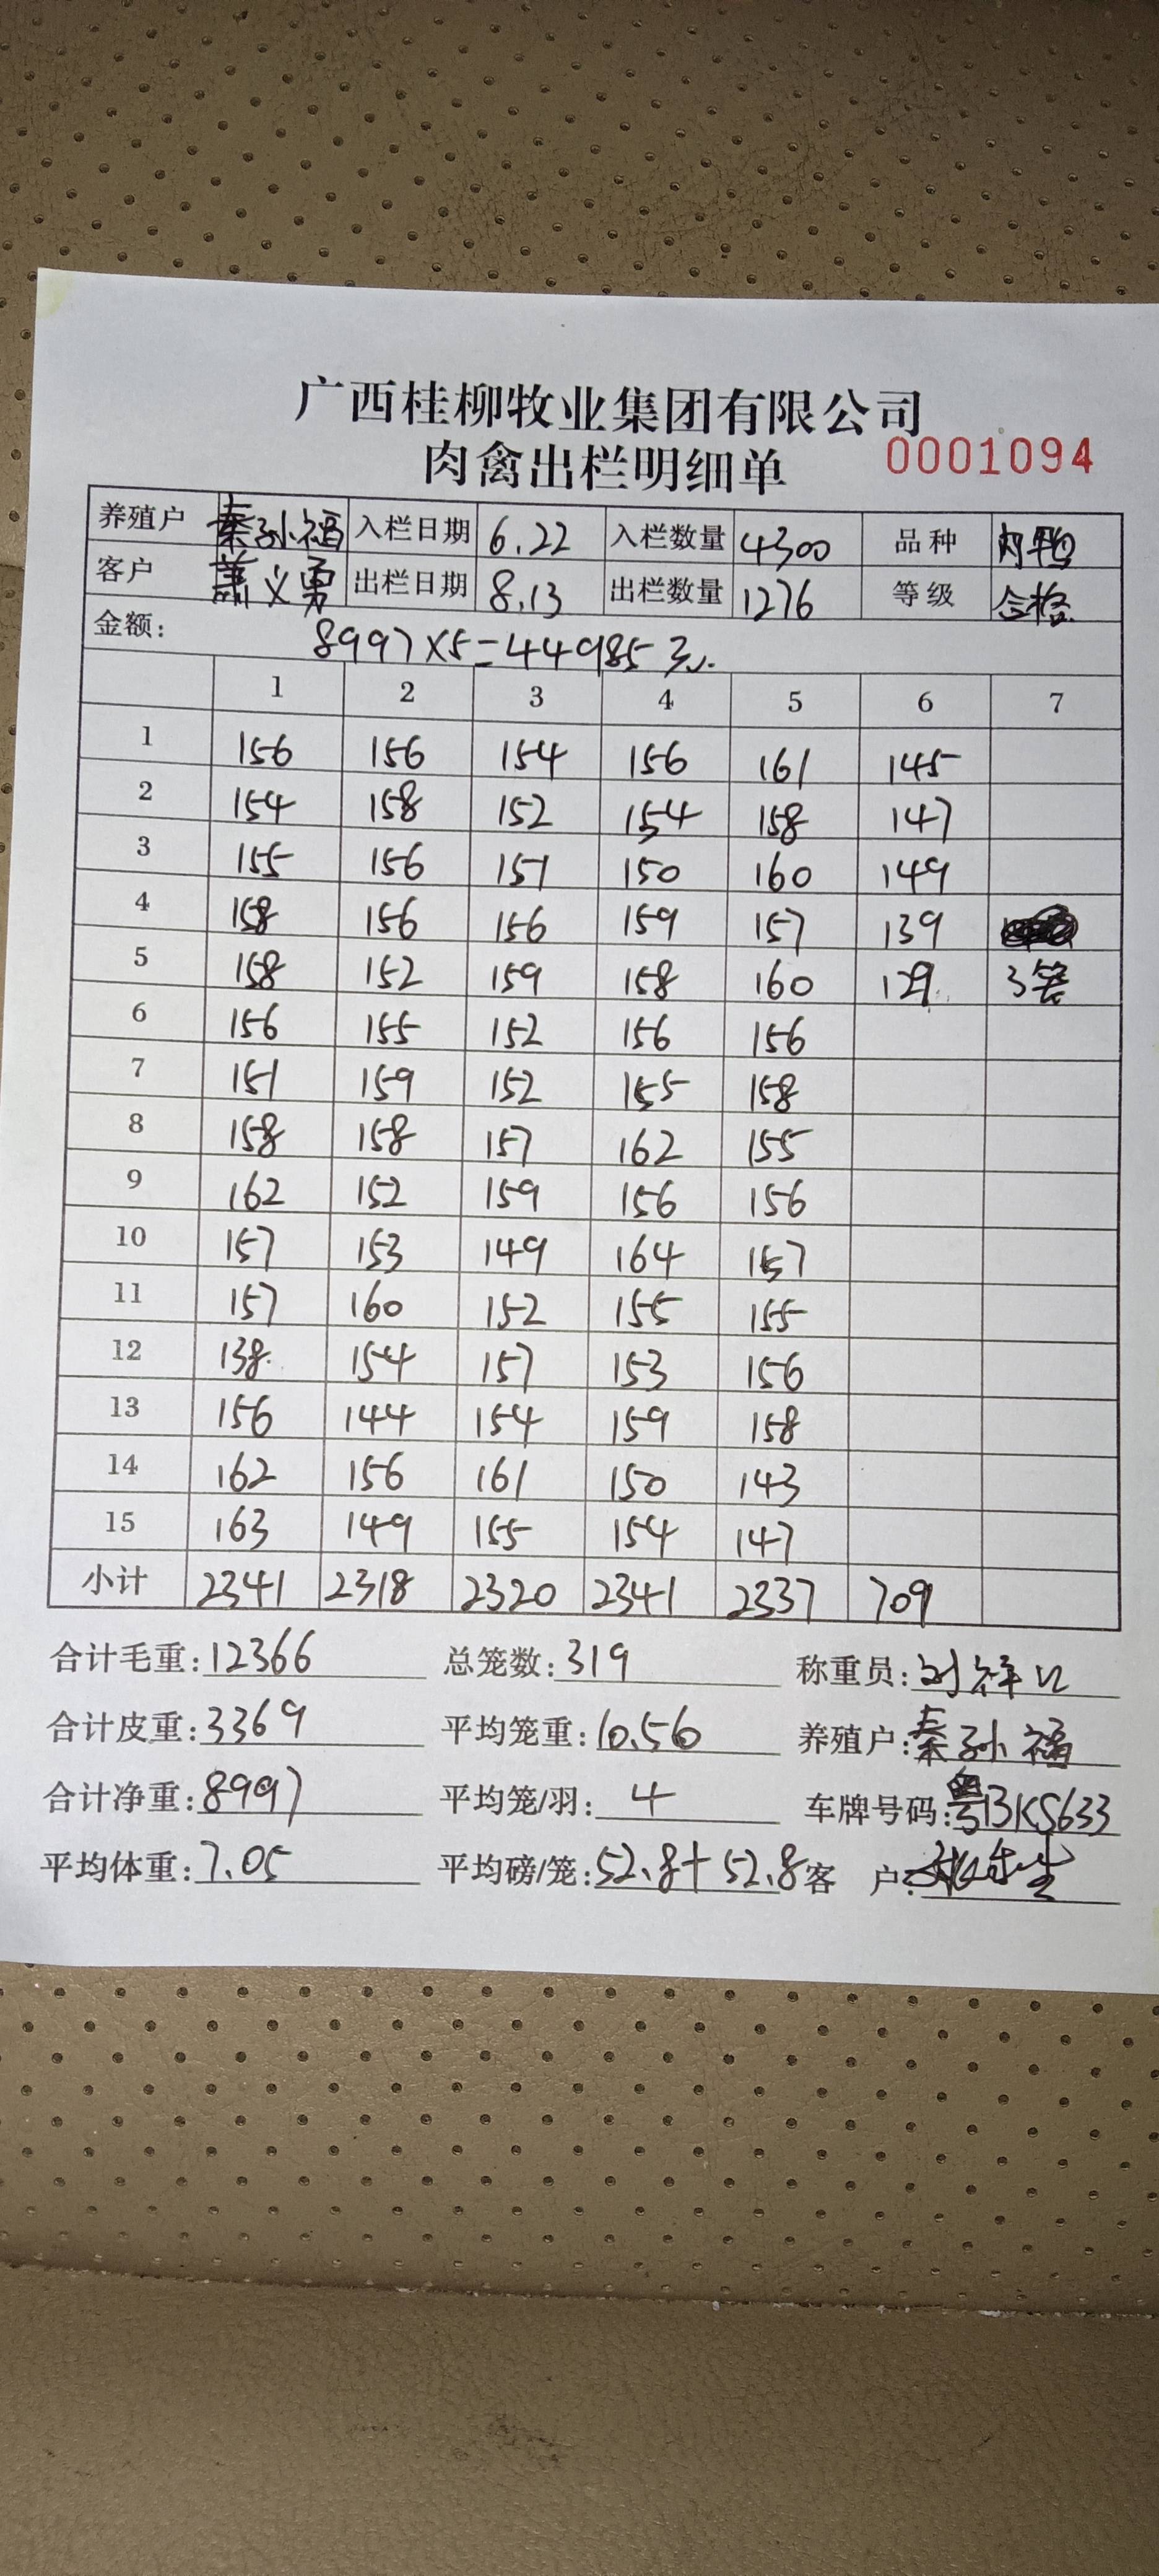 广西桂柳牧业集团有限公司
肉禽出栏明细单 0001094
养殖户 秦孙福 入栏日期 6.22 入栏数量 4300 品种 肉鸭
客户 萧义勇 出栏日期 8.13 出栏数量 1276 等级 合格
金额: 8997×5=44985元.
1 2 3 4 5 6 7
1 156 156 154 156 161 145
2 154 158 152 154 158 147
3 155 156 151 150 160 149
4 158 156 156 159 157 139
5 158 152 159 158 160 129 3笼
6 156 155 152 156 156
7 151 159 152 155 158
8 158 158 157 162 155
9 162 152 159 156 156
10 157 153 149 164 157
11 157 160 152 155 155
12 138 154 157 153 156
13 156 144 154 159 158
14 162 156 161 150 143
15 163 149 155 154 147
小计 2341 2318 2320 2341 2337 709
合计毛重: 12366 总笼数: 319 称重员: 刘祥
合计皮重: 3369 平均笼重: 10.56 养殖户: 秦孙福
合计净重: 8997 平均笼/羽: 4 车牌号码: 粤BKS633
平均体重: 7.05 平均磅/笼: 52.8+52.8 客户: